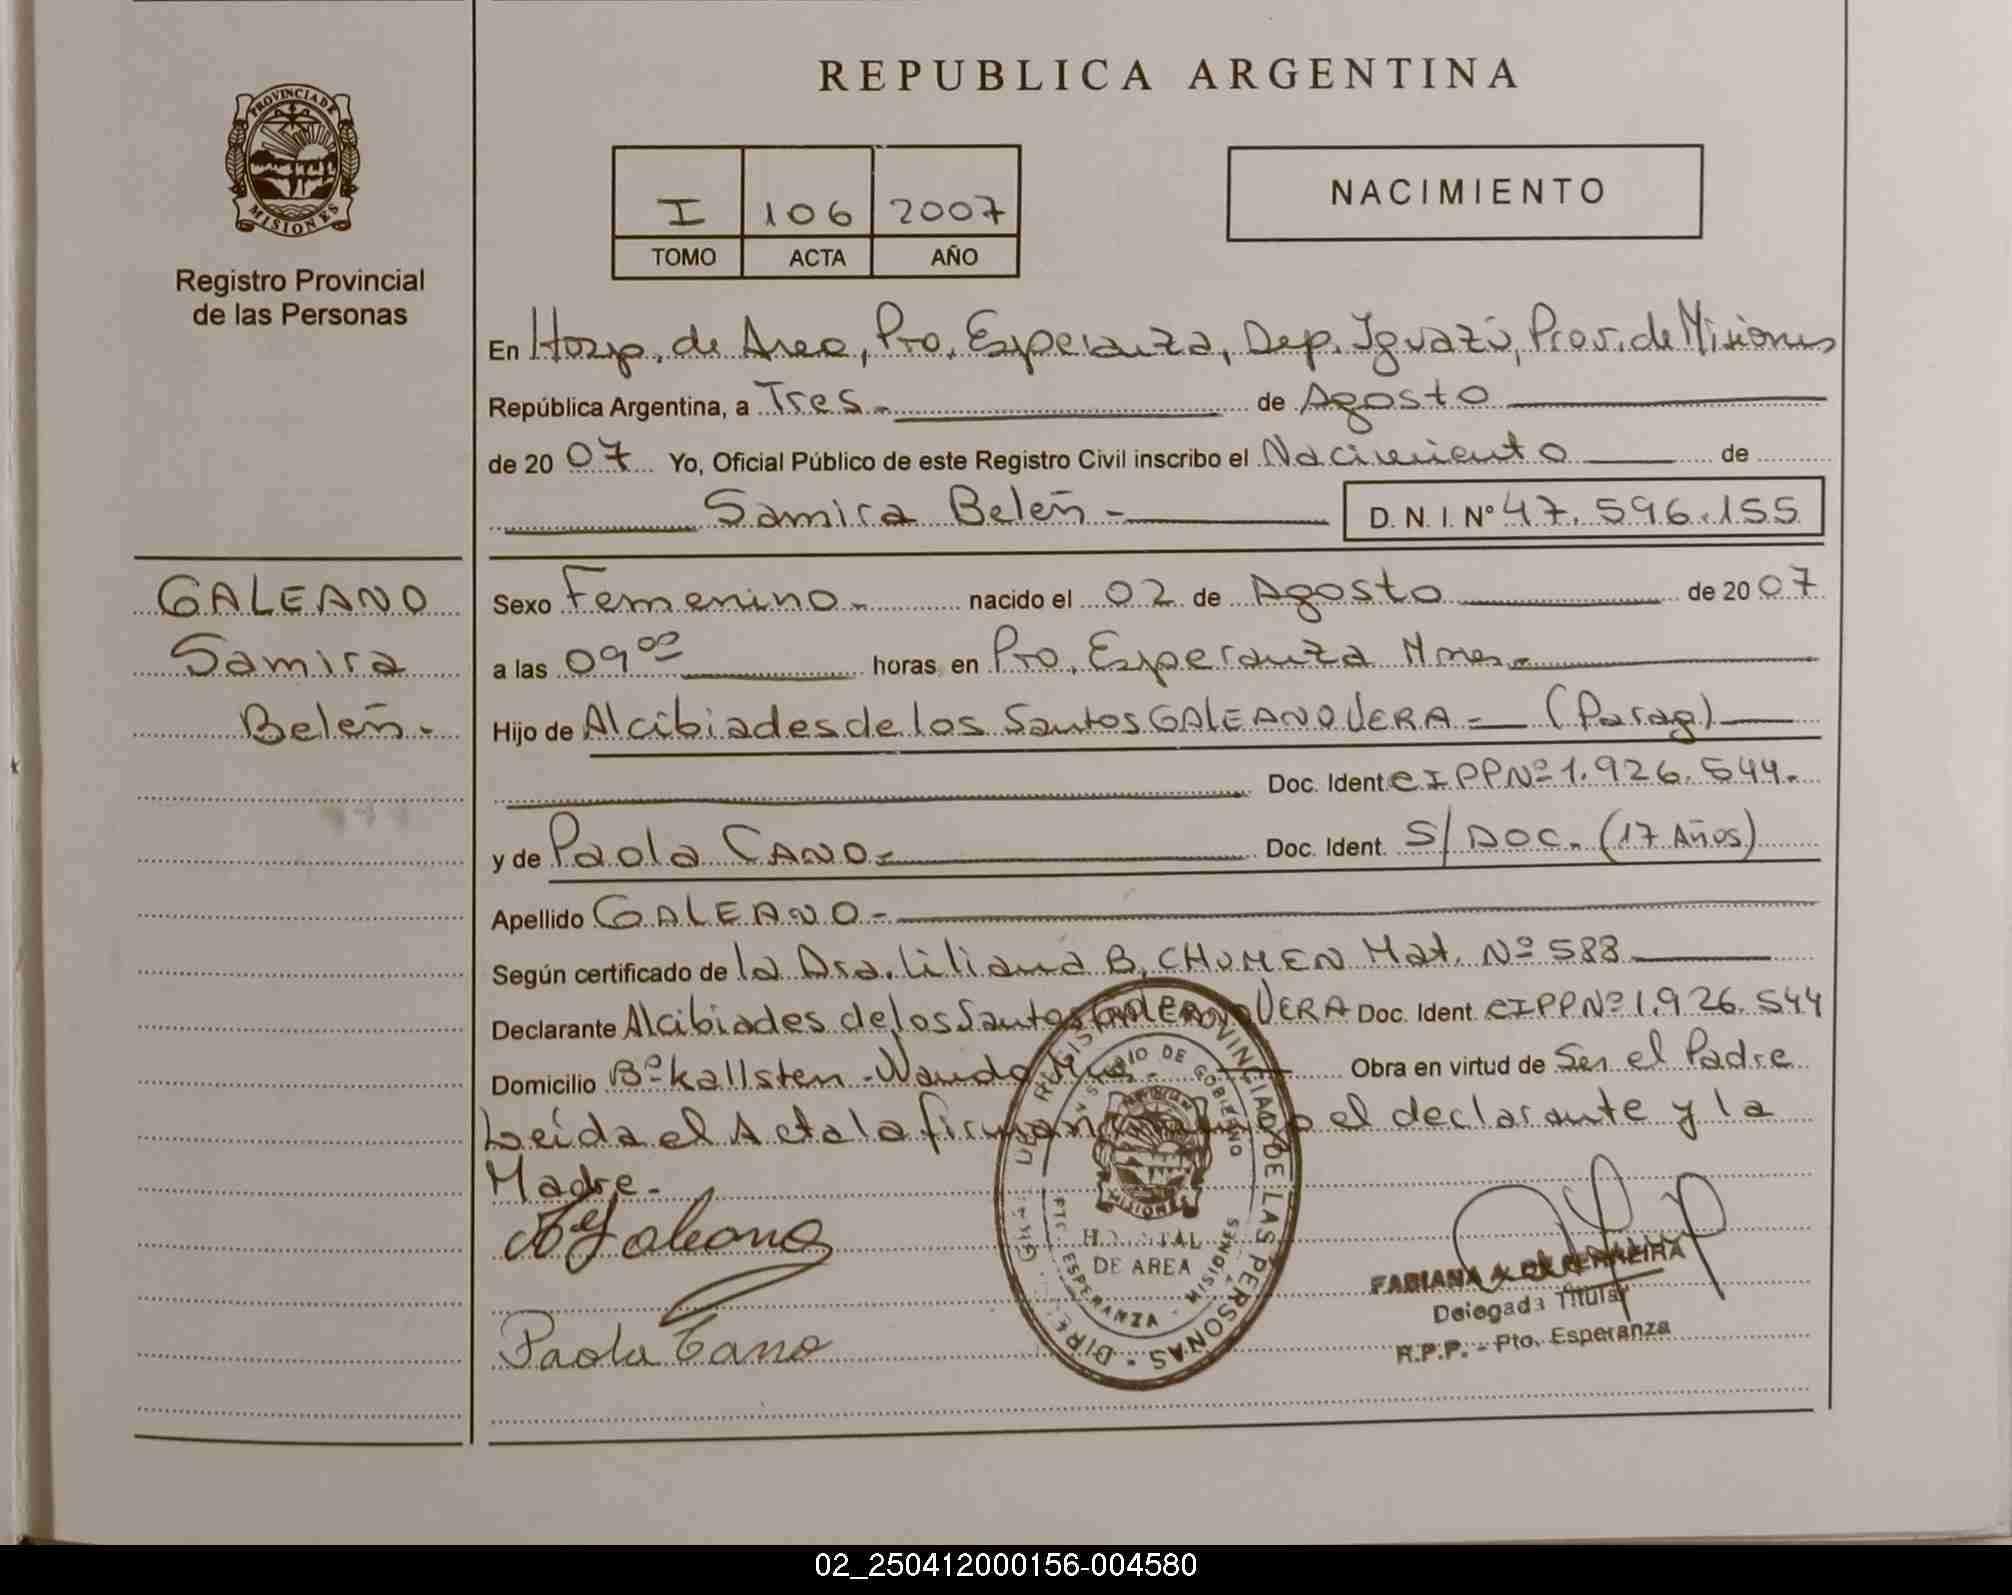 PROVINCIA DE
MISIONES
Registro Provincial
de las Personas
REPUBLICA ARGENTINA
I 106 2007
TOMO ACTA AÑO
NACIMIENTO
En Hosp. de Area, Pto. Esperanza, Dep. Iguazú, Prov. de Misiones
República Argentina, a Tres.- de Agosto
de 2007 Yo, Oficial Público de este Registro Civil inscribo el Nacimiento de
Samira Belén - D. N. I. Nº 47.596.155
GALEANO
Samira
Belén.-
Sexo Femenino.- nacido el 02 de Agosto de 2007
a las 09⁰⁰ horas en Pto. Esperanza Mnes.-
Hijo de Alcibiades de los Santos GALEANO VERA - (Parag)
Doc. Ident. CIPPNº 1.926.544.
y de Paola CANO.- Doc. Ident. S/DOC. (17 AÑOS)
Apellido GALEANO -
Según certificado de la Dra. Liliana B. CHUMEN Mat. Nº 588
Declarante Alcibiades de los Santos GALEANO VERA Doc. Ident. CIPPNº 1.926.544
Domicilio Bº Kallsten - Wanda Mnes. Obra en virtud de Ser el Padre
Leída el Acta la firman el declarante y la
Madre.-
Galeano
Paola Cano
REGISTRO PROVINCIAL DE LAS PERSONAS
MINISTERIO DE GOBIERNO
MISIONES
HOSPITAL
DE AREA
PTO. ESPERANZA - MISIONES
FABIANA A.
Delegada Titular
R.P.P. - Pto. Esperanza
02_250412000156-004580